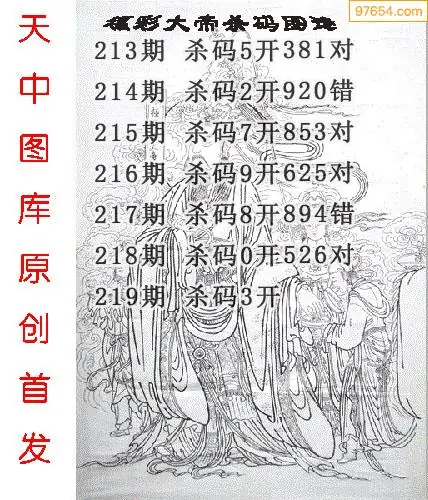 97654.com
福彩大帝杀码图谜
213期 杀码5开381对
214期 杀码2开920错
215期 杀码7开853对
216期 杀码9开625对
217期 杀码8开894错
218期 杀码0开526对
219期 杀码3开
天中图库原创首发